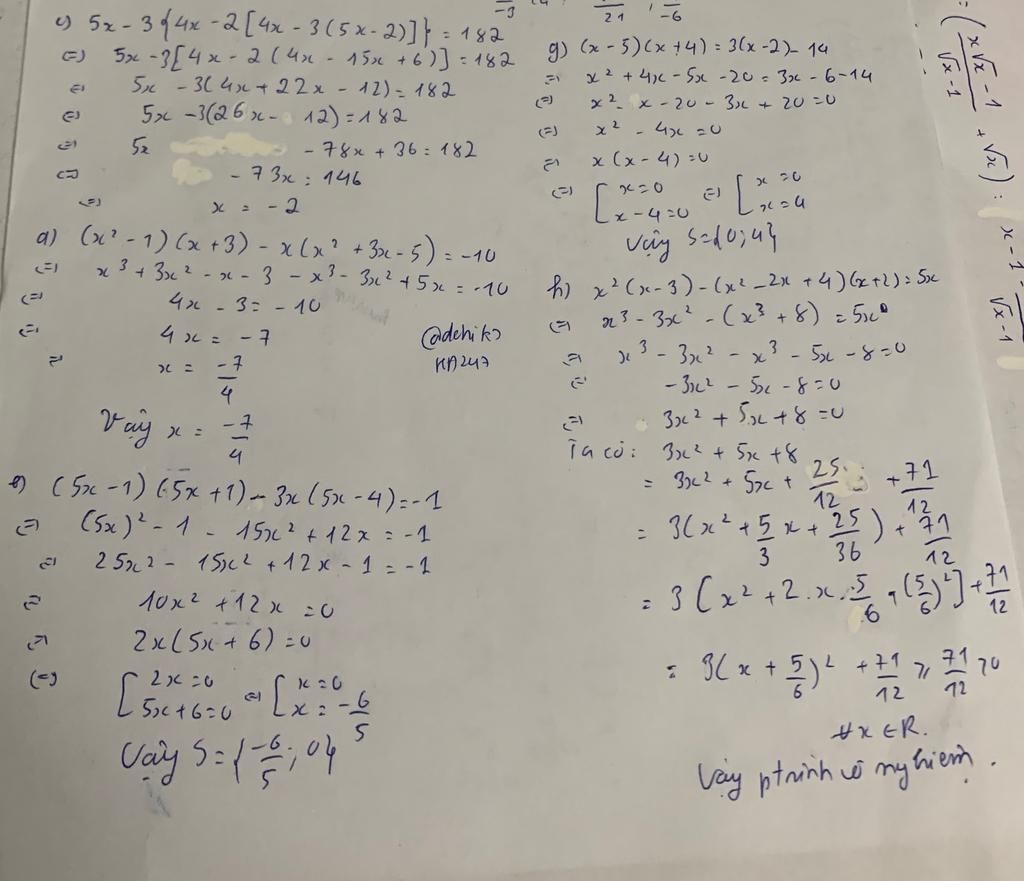 c) 5x - 3{4x - 2[4x - 3(5x - 2)]} = 182
(=) 5x - 3[4x - 2(4x - 15x + 6)] = 182
(=) 5x - 3(4x + 22x - 12) = 182
(=) 5x - 3(26x - 12) = 182
(=) 5x - 78x + 36 = 182
(=) - 73x = 146
(=) x = -2
d) (x² - 1)(x + 3) - x(x² + 3x - 5) = -10
(=) x³ + 3x² - x - 3 - x³ - 3x² + 5x = -10
(=) 4x - 3 = -10
(=) 4x = -7
(=) x = -7/4
Vậy x = -7/4
@dehik
e) (5x - 1)(5x + 1) - 3x(5x - 4) = -1
(=) (5x)² - 1 - 15x² + 12x = -1
(=) 25x² - 15x² + 12x - 1 = -1
(=) 10x² + 12x = 0
(=) 2x(5x + 6) = 0
(=) [2x = 0 (=) [x = 0
5x + 6 = 0 x = -6/5
Vậy S = {-6/5; 0}
-3
21 ; -6
g) (x - 5)(x + 4) = 3(x - 2) - 14
(=) x² + 4x - 5x - 20 = 3x - 6 - 14
(=) x² - x - 20 - 3x + 20 = 0
(=) x² - 4x = 0
(=) x(x - 4) = 0
(=) [x = 0 (=) [x = 0
x - 4 = 0 x = 4
Vậy S = {0; 4}
h) x²(x - 3) - (x² - 2x + 4)(x + 2) = 5x
(=) x³ - 3x² - (x³ + 8) = 5x
(=) x³ - 3x² - x³ - 5x - 8 = 0
(=) -3x² - 5x - 8 = 0
(=) 3x² + 5x + 8 = 0
Ta có: 3x² + 5x + 8
= 3x² + 5x + 25/12 + 71/12
= 3(x² + 5/3 x + 25/36) + 71/12
= 3[x² + 2.x.5/6 + (5/6)²] + 71/12
= 3(x + 5/6)² + 71/12 ≥ 71/12 > 0
∀x ∈ R.
Vậy ptrình vô nghiệm.
: (x√x - 1 / √x - 1 + √x) : x - 1 / √x - 1